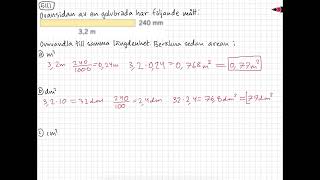 6111
Ovansidan av en golvbräda har följande mått:
240 mm
3,2 m
Omvandla till samma längdenhet. Beräkna sedan arean i
a) m²
3,2m 240/1000 = 0,24m 3,2 · 0,24 = 0,768 m² = 0,77m²
b) dm²
3,2 · 10 = 32dm 240/100 = 2,4dm 32 · 2,4 = 76,8 dm² = 77dm²
c) cm²